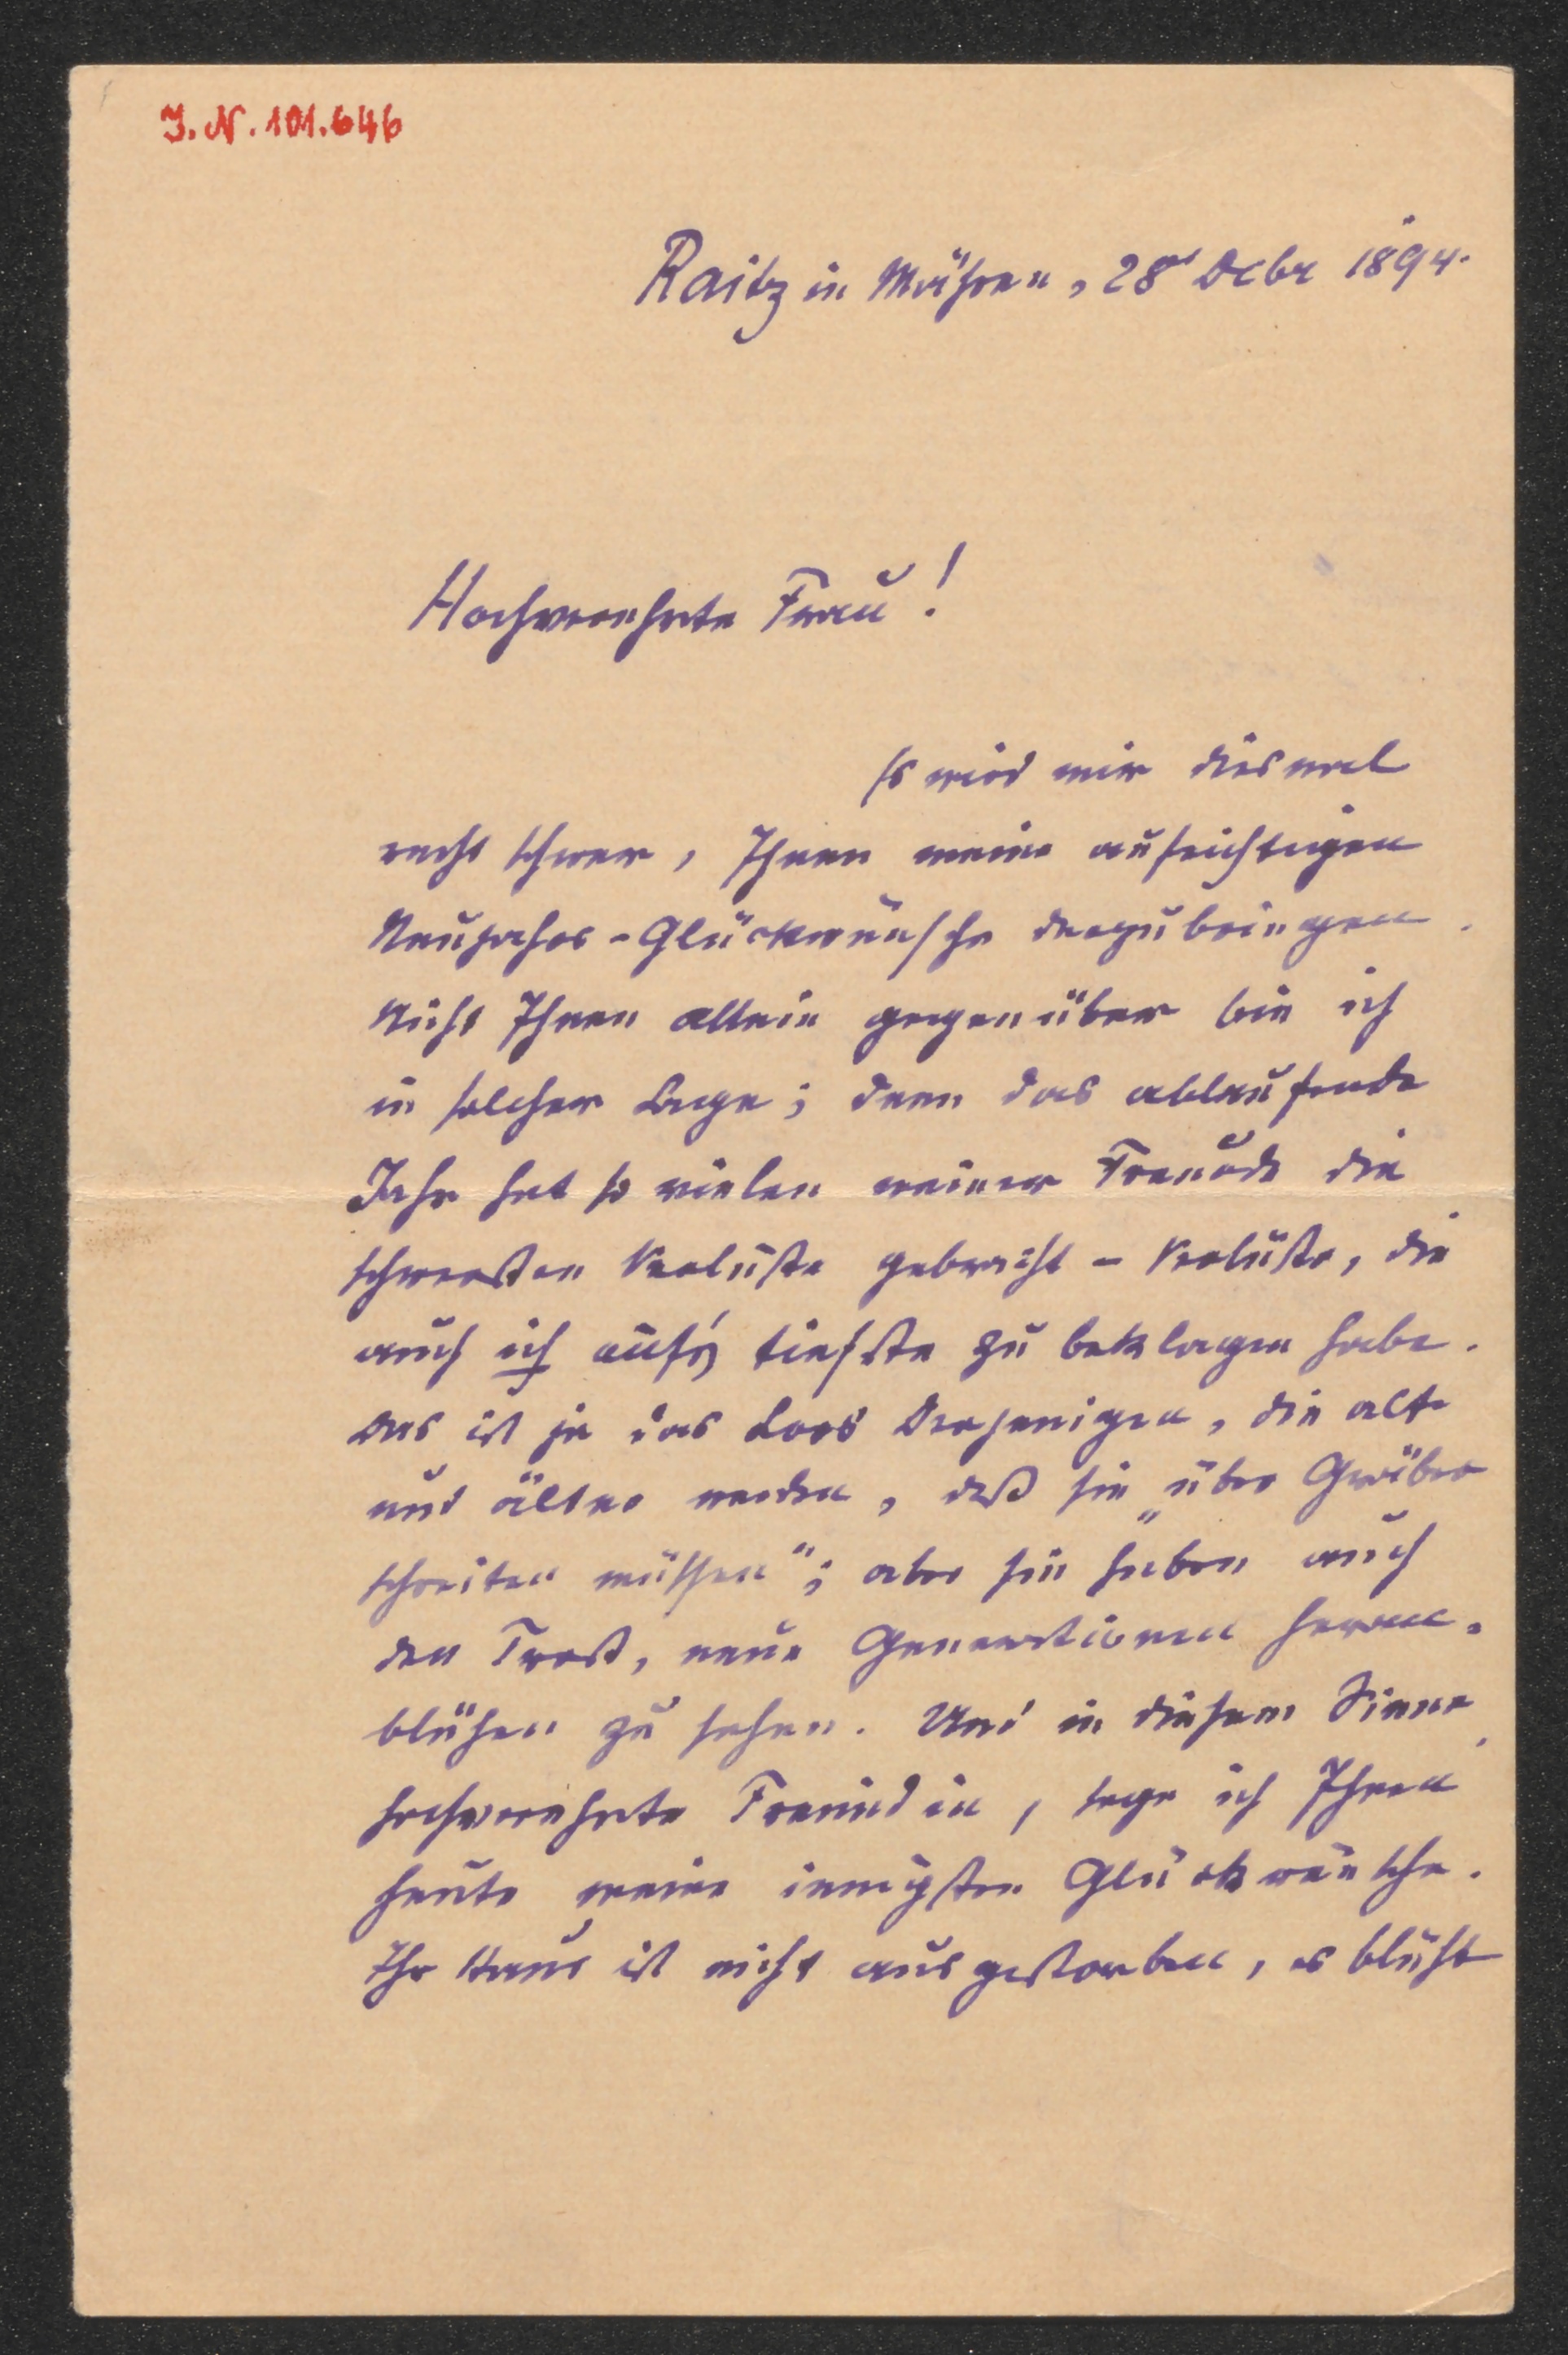 I. N. 101.646
Raitz in Mähren, 28t Dcbr 1894.
Hochverehrte Frau!
Es wird mir diesmal
recht schwer, Ihnen meine aufrichtigen
Neujahrs-Glückwünsche darzubringen.
Nicht Ihnen allein gegenüber bin ich
in solcher Lage; denn das ablaufende
Jahr hat so vielen meiner Freunde die
schwersten Verluste gebracht – Verluste, die
auch ich auf's tiefste zu beklagen habe.
Das ist ja das Loos Derjenigen, die alt
und älter werden, daß sie „über Gräber
schreiten müssen"; aber sie haben auch
den Trost, neue Generationen heran-
blühen zu sehen. Und in diesem Sinne,
hochverehrte Freundin, sage ich Ihnen
heute meine innigsten Glückwünsche.
Ihr Haus ist nicht ausgestorben, es blüht